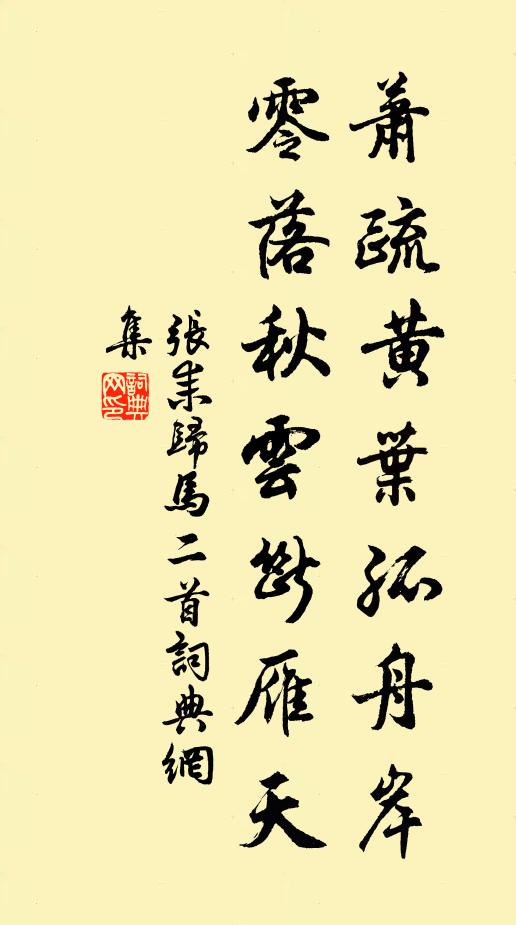 蕭疏黃葉孤舟岸
零落秋雲斷雁天
張耒歸馬二首詞典網
集
詞典
网印